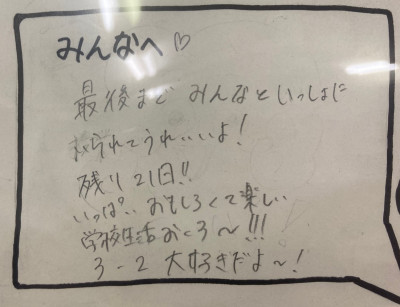 みんなへ♡
最後まで みんなといっしょに
られてうれしいよ!
残り 21日!!
いっぱい おもしろくて楽しい
学校生活おくろ〜!!!
3-2 大好きだよ〜!